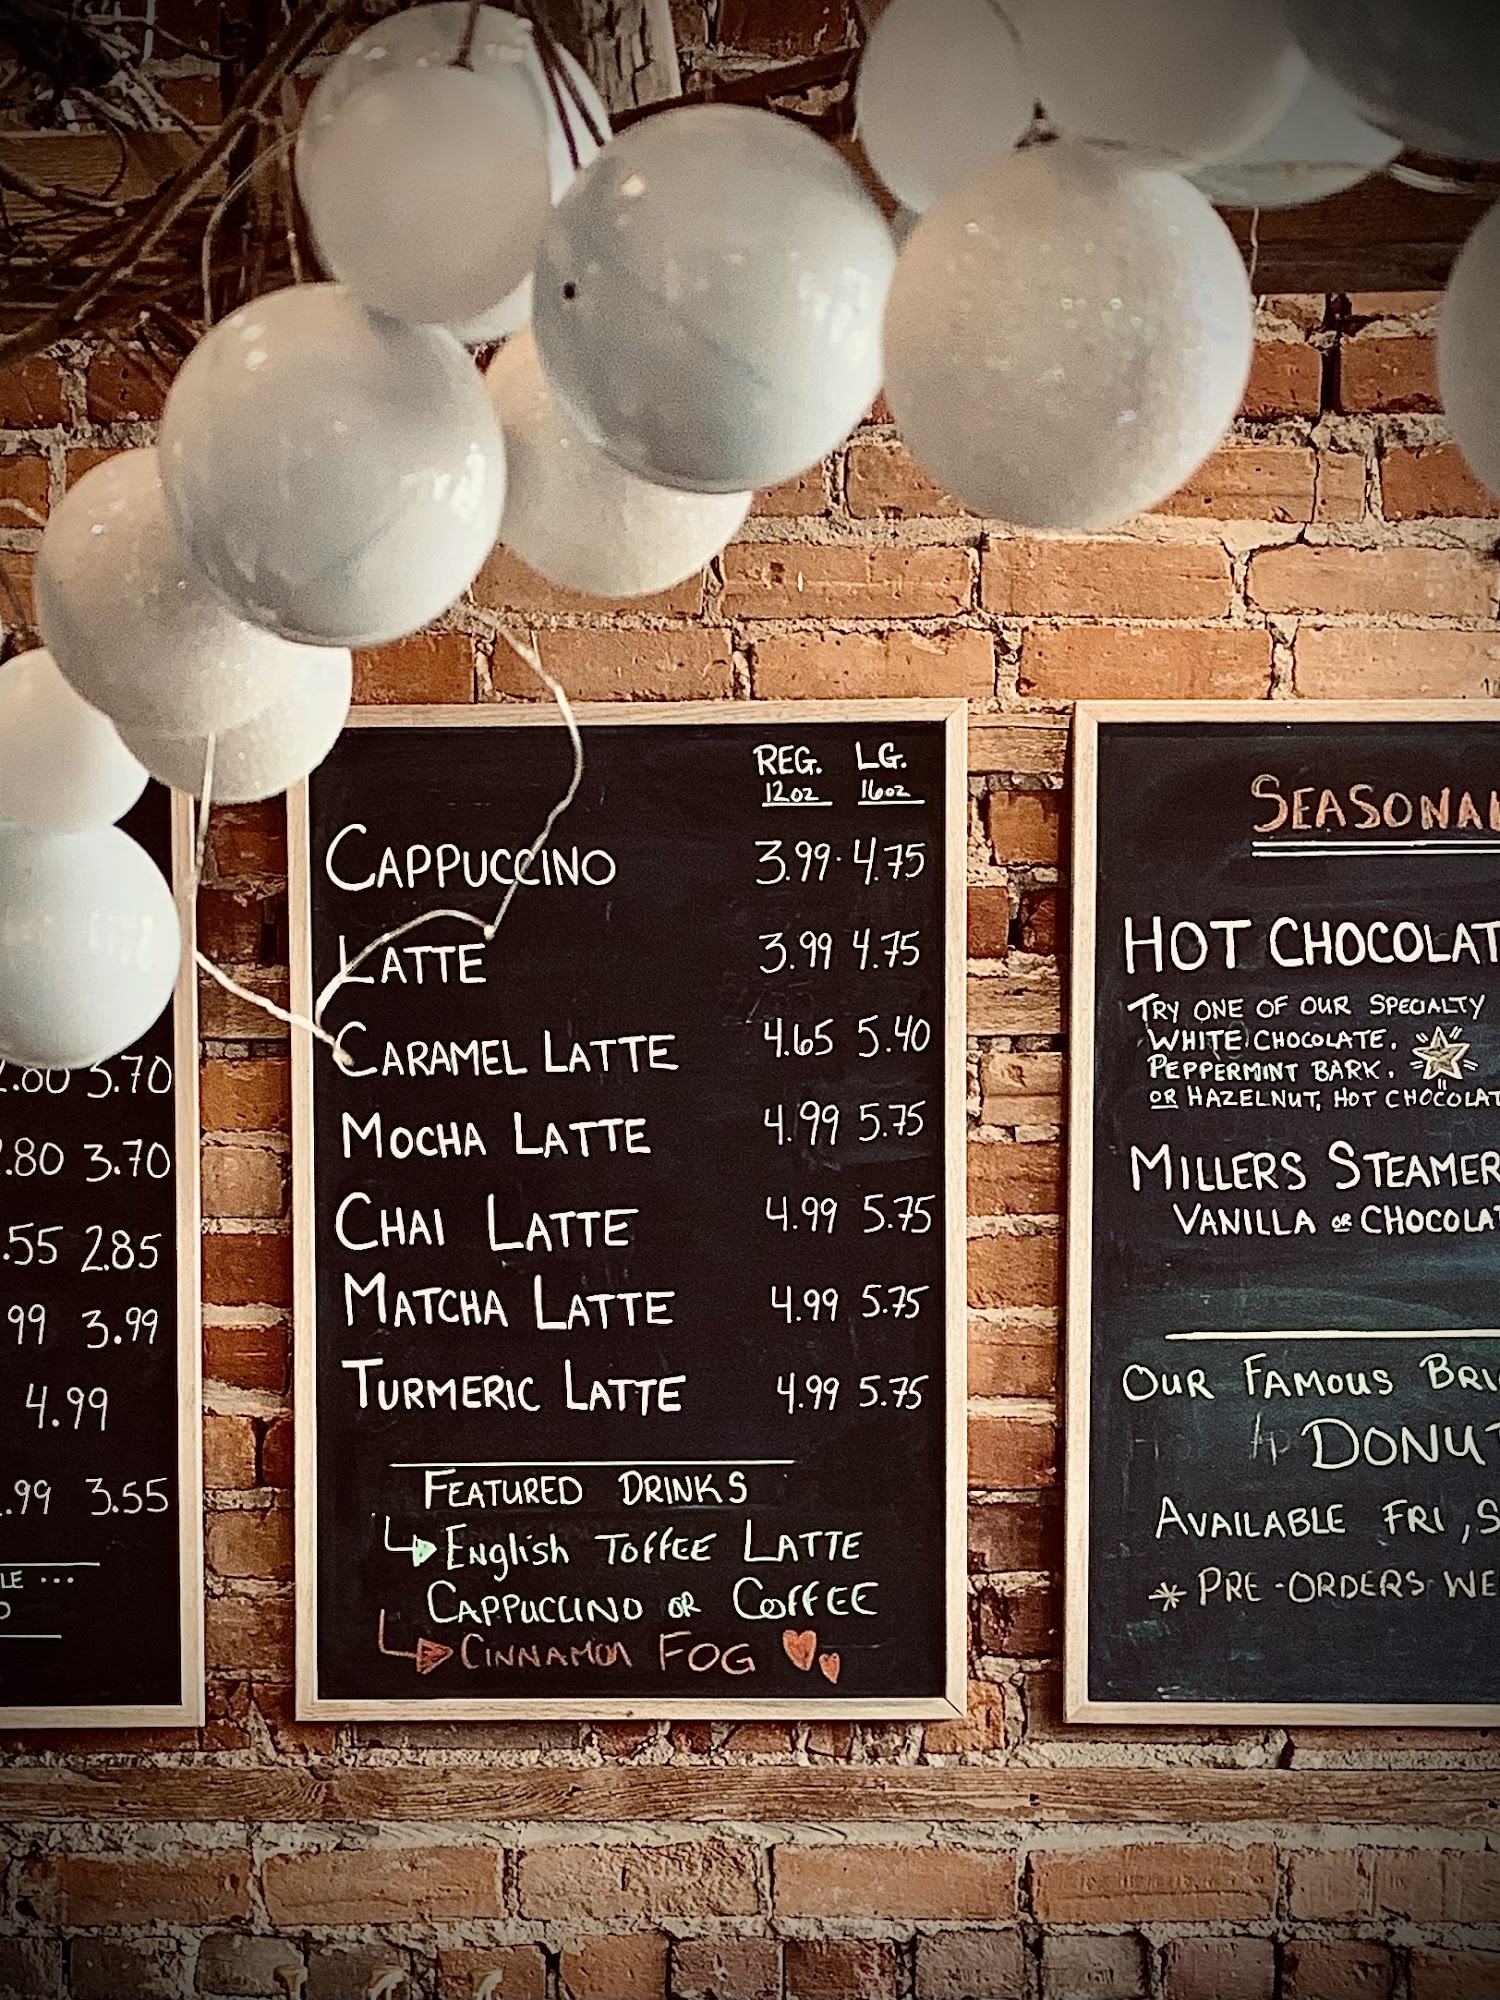 .80 3.70
.80 3.70
.55 2.85
99 3.99
4.99
.99 3.55
LE ...
REG. LG.
12oz 16oz
CAPPUCCINO 3.99 4.75
LATTE 3.99 4.75
CARAMEL LATTE 4.65 5.40
MOCHA LATTE 4.99 5.75
CHAI LATTE 4.99 5.75
MATCHA LATTE 4.99 5.75
TURMERIC LATTE 4.99 5.75
FEATURED DRINKS
English TOFFEE LATTE
CAPPUCCINO OR COFFEE
CINNAMON FOG
SEASONAL
HOT CHOCOLAT
TRY ONE OF OUR SPECIALTY
WHITE CHOCOLATE,
PEPPERMINT BARK,
OR HAZELNUT, HOT CHOCOLAT
MILLERS STEAMER
VANILLA OR CHOCOLAT
OUR FAMOUS BRI
DONUT
AVAILABLE FRI, S
* PRE-ORDERS WE